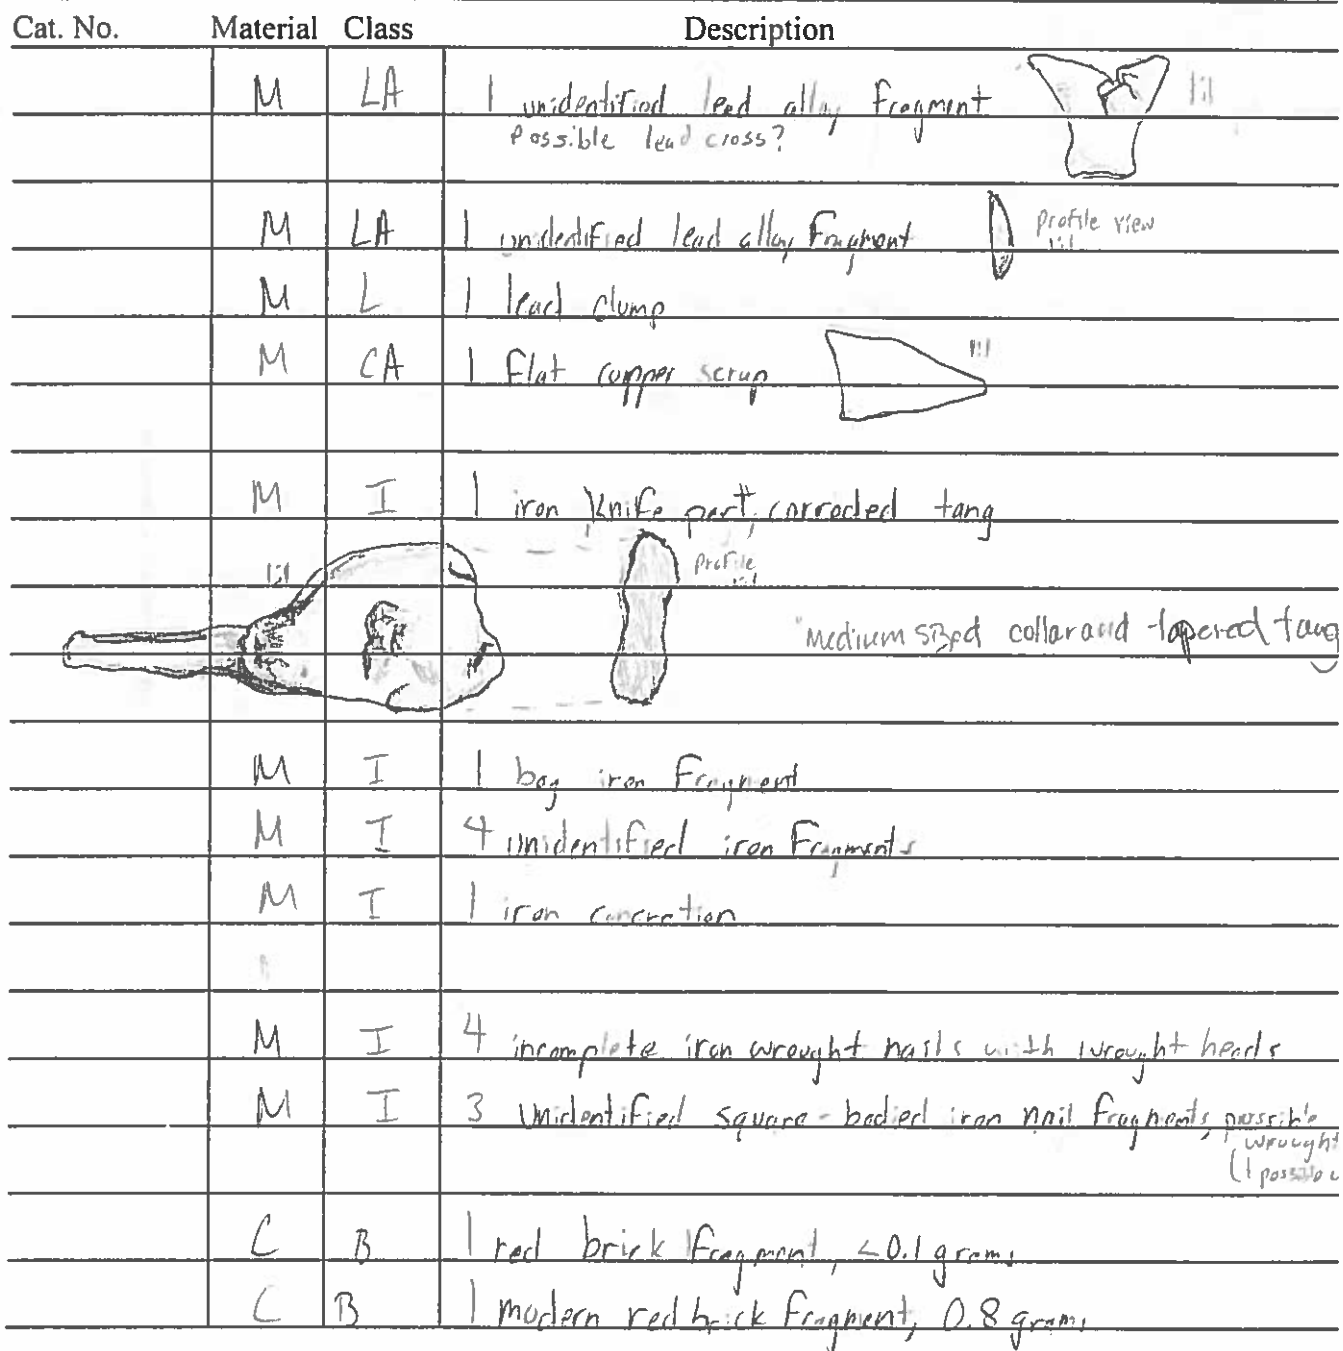 Cat. No. Material Class Description
M LA 1 unidentified lead alloy fragment 1:1
Possible lead cross?
M LA 1 unidentified lead alloy fragment profile view
1:1
M L 1 lead clump
M CA 1 flat copper scrap 1:1
M I 1 iron knife part, corroded tang
1:1 profile
1:1
medium sized collar and tapered tang
M I 1 bog iron fragment
M I 4 unidentified iron fragments
M I 1 iron concretion
M I 4 incomplete iron wrought nails with wrought heads
M I 3 unidentified square-bodied iron nail fragments, possible
wrought
(1 possible
C B 1 red brick fragment, <0.1 grams
C B 1 modern red brick fragment, 0.8 grams